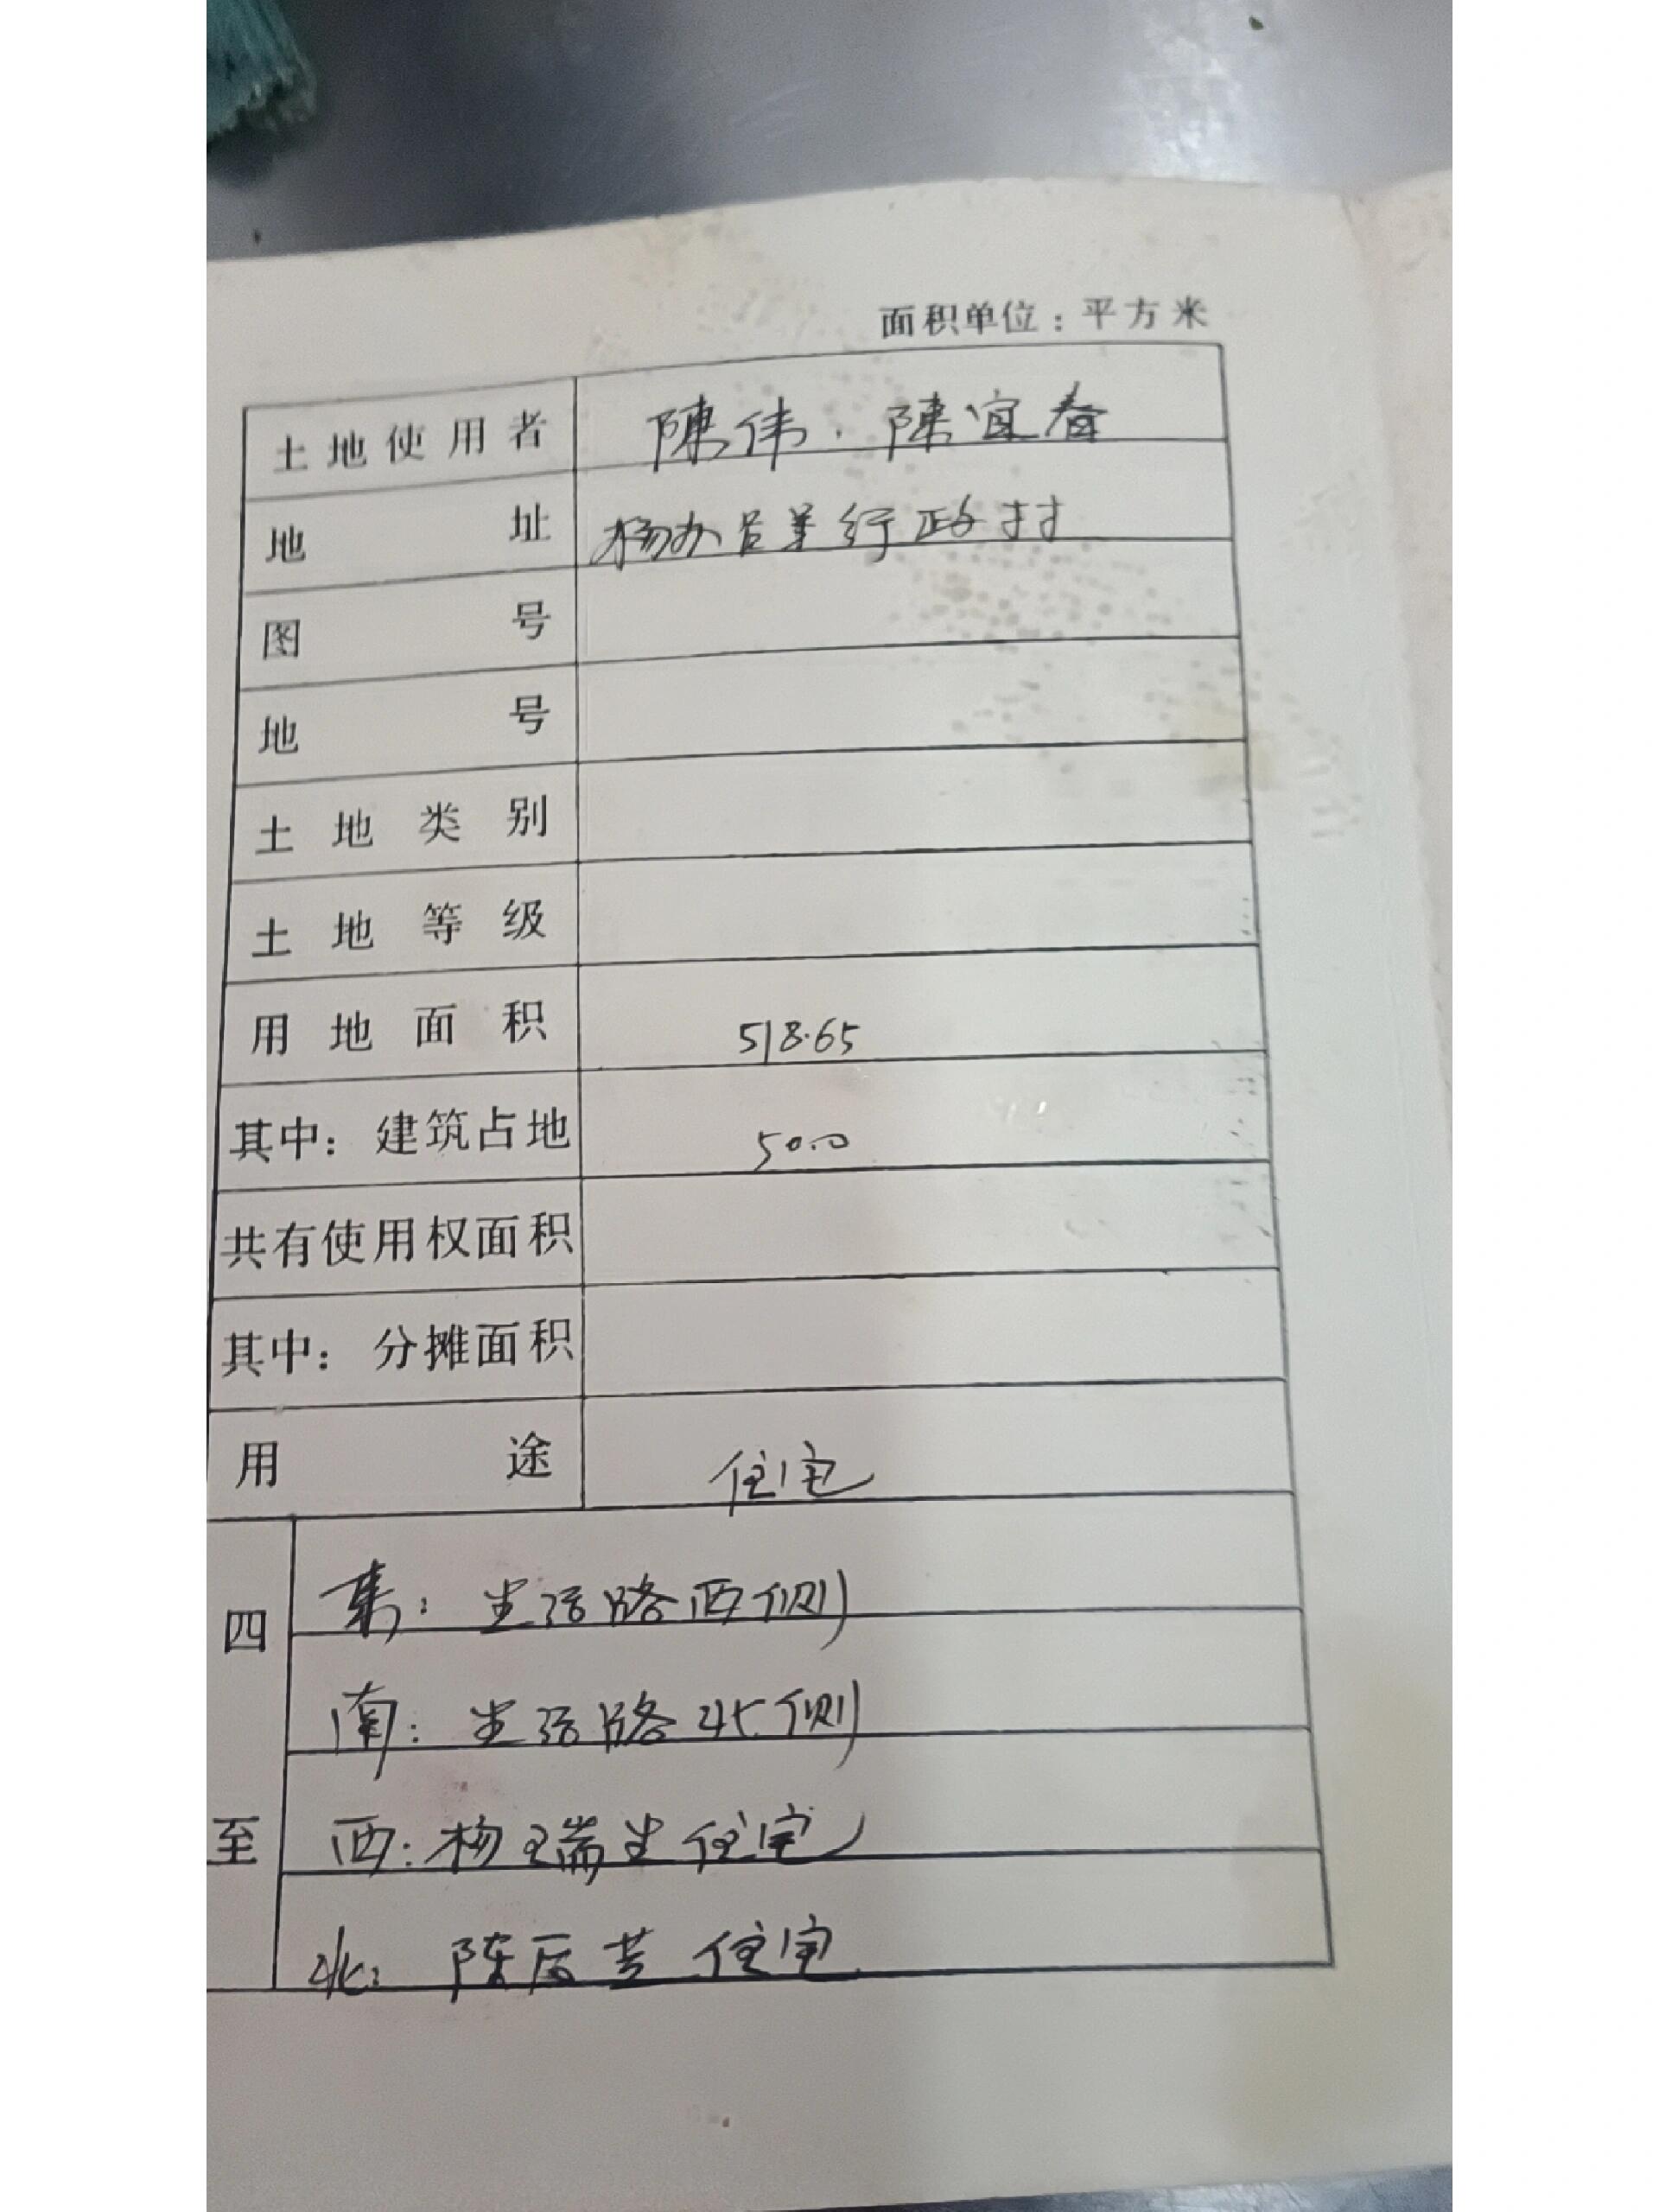 面积单位：平方米
土地使用者 陳伟．陳宜春
地址 杨办吕呈行政村
图号
地号
土地类别
土地等级
用地面积 518.65
其中：建筑占地 50.0
共有使用权面积
其中：分摊面积
用途 住宅
四至
东：生活路西侧
南：生活路北侧
西：杨瑞生住宅
北：陈 住宅